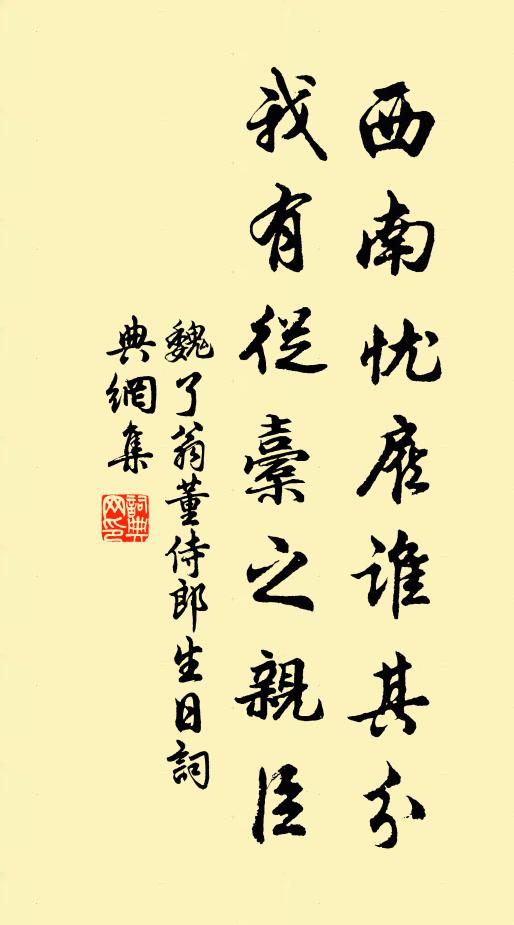 西南忧顾谁其分
我有從橐之親臣
魏了翁董侍郎生日詞
典網集
詞典網印